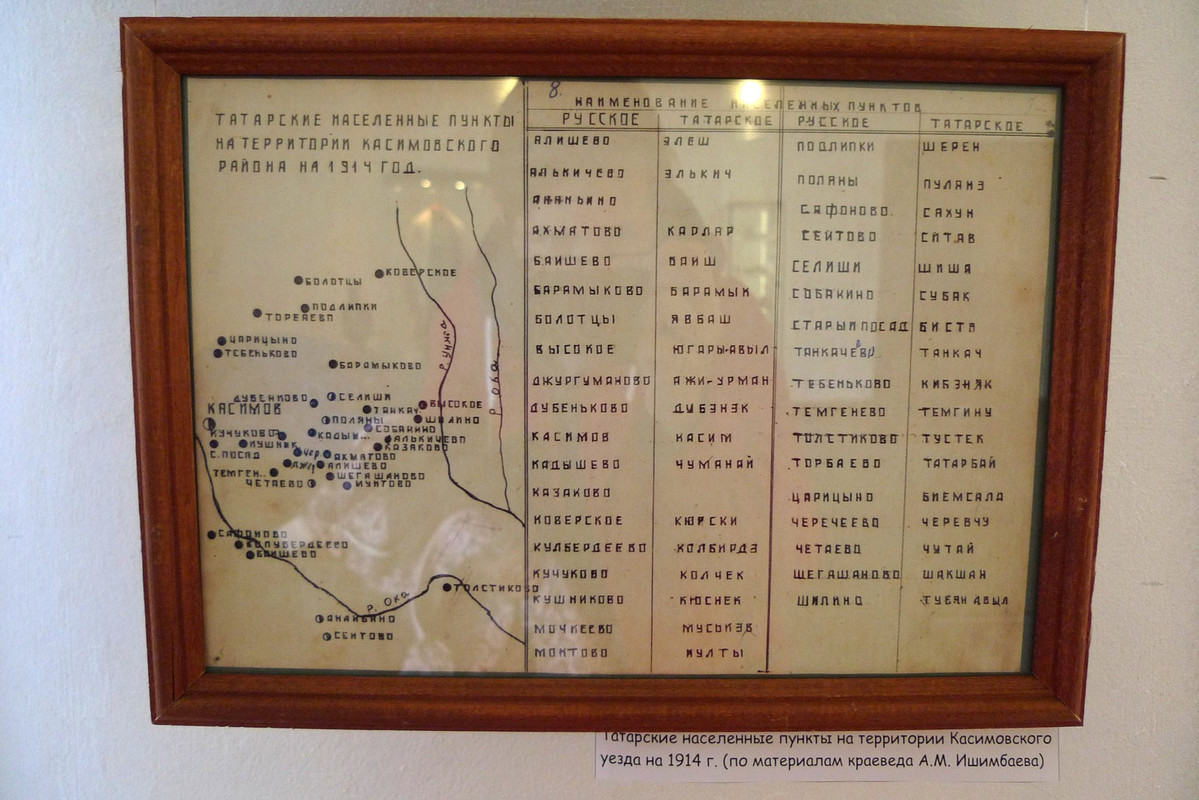 ТАТАРСКИЕ НАСЕЛЕННЫЕ ПУНКТЫ
НА ТЕРРИТОРИИ КАСИМОВСКОГО
РАЙОНА НА 1914 ГОД.
КОВЕРСКОЕ
БОЛОТЦЫ
ПОДЛИПКИ
ТОРБАЕВО
ЦАРИЦЫНО
ТЕБЕНЬКОВО
БАРАМЫКОВО
ДУБЕНЬКОВО
СЕЛИШИ
КАСИМОВ
ТАНКАЧ
ВЫСОКОЕ
ПОЛЯНЫ
ШИЛИНО
СОБАКИНО
КУЧУКОВО
КАДЫШ...
АЛЬКИЧЕВО
КУШНИК
КАЗАКОВО
С. ПОСАД
ЧЕР.
АХМАТОВО
АЛИШЕВО
ТЕМГЕН..
ШЕГАШАНОВО
ЧЕТАЕВО
САФОНОВО
БАИШЕВО
ТОЛСТИКОВО
Р. ОКА
СЕИТОВО
Р. ОКА
8.
НАИМЕНОВАНИЕ НАСЕЛЕННЫХ ПУНКТОВ
РУССКОЕ ТАТАРСКОЕ РУССКОЕ ТАТАРСКОЕ
АЛИШЕВО ЭЛЕШ ПОДЛИПКИ ШЕРЕН
АЛЬКИЧЕВО ЭЛЬКИЧ ПОЛЯНЫ ПУЛЯНЭ
АНАНЬИНО САФОНОВО. САХУН
АХМАТОВО КАРЛАР СЕИТОВО СИТАВ
БАИШЕВО БАИШ СЕЛИШИ ШИША
БАРАМЫКОВО БАРАМЫК СОБАКИНО СУБАК
БОЛОТЦЫ ЯВБАШ СТАРЫЙ ПОСАД БИСТЭ
ВЫСОКОЕ ЮГАРЫ-АВЫЛ ТАНКАЧЕВО ТАНКАЧ
ДЖУРГУМАНОВО АЖИ-УРМАН ТЕБЕНЬКОВО КИБЭНЯК
ДУБЕНЬКОВО ДУБЭНЭК ТЕМГЕНЕВО ТЕМГИНУ
КАСИМОВ КАСИМ ТОЛСТИКОВО ТУСТЕК
КАДЫШЕВО ЧУМАНАЙ ТОРБАЕВО ТАТАРБАЙ
КАЗАКОВО ЦАРИЦЫНО БИЕМСАЛА
КОВЕРСКОЕ КЮРСКИ ЧЕРЕЧЕЕВО ЧЕРЕВЧУ
КУЛБЕРДЕЕВО КОЛБИРДЭ ЧЕТАЕВО ЧУТАЙ
КУЧУКОВО КОЛЧЕК ШЕГАШАНОВО ШАКШАН
КУШНИКОВО КЮСНЕК ШИЛИНО ТУБЯН АВЫЛ
МОЧКЕЕВО МУСЬКЭВ
МОНТОВО МУЛТЫ
Татарские населенные пункты на территории Касимовского
уезда на 1914 г. (по материалам краеведа А.М. Ишимбаева)